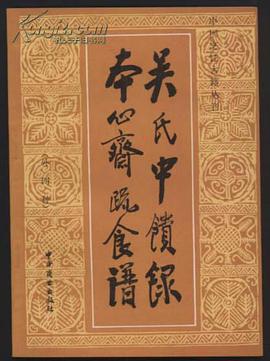 中国烹饪古籍丛刊
吴氏中馈录
本心斋疏食谱
(外四种)
中国商业出版社